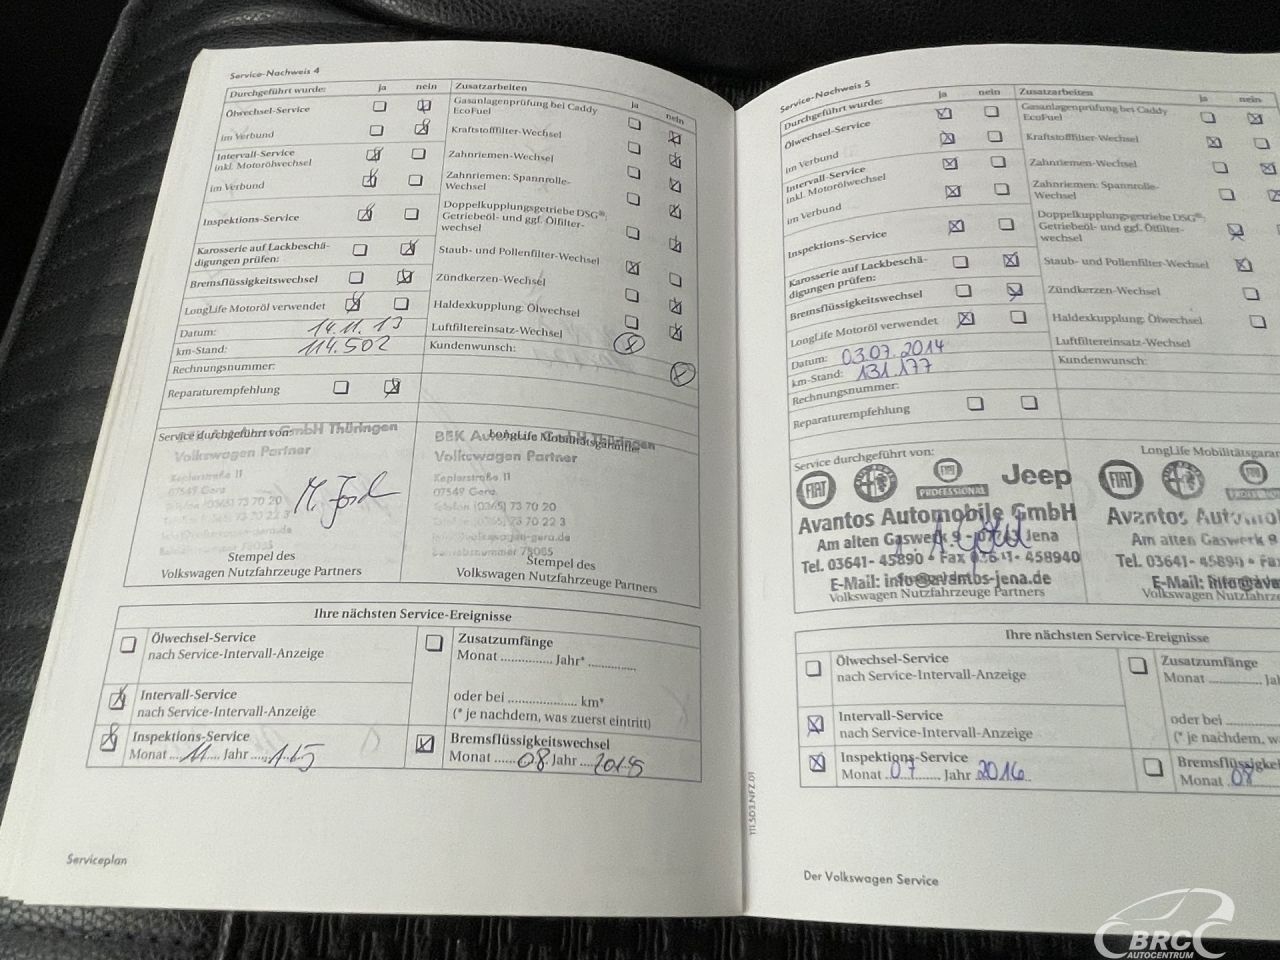 Service-Nachweis 4
Durchgeführt wurde: ja nein Zusatzarbeiten ja nein
Ölwechsel-Service
im Verbund
Intervall-Service
inkl. Motorölwechsel
im Verbund
Inspektions-Service
Karosserie auf Lackbeschä-
digungen prüfen:
Bremsflüssigkeitswechsel
LongLife Motoröl verwendet
Datum: 14.11.13
km-Stand: 114.502
Rechnungsnummer:
Reparaturempfehlung
Gasanlagenprüfung bei Caddy
EcoFuel
Kraftstofffilter-Wechsel
Zahnriemen-Wechsel
Zahnriemen: Spannrolle-
Wechsel
Doppelkupplungsgetriebe DSG®:
Getriebeöl- und ggf. Ölfilter-
wechsel
Staub- und Pollenfilter-Wechsel
Zündkerzen-Wechsel
Haldexkupplung: Ölwechsel
Luftfiltereinsatz-Wechsel
Kundenwunsch:
Service durchgeführt von: GmbH Thüringen
Volkswagen Partner
Keplerstraße 11
07549 Gera
Stempel des
Volkswagen Nutzfahrzeuge Partners
LongLife Mobilitätsgarantie
Volkswagen Partner
Keplerstraße 11
07549 Gera
Telefon (0365) 73 70 20
Stempel des
Volkswagen Nutzfahrzeuge Partners
Ihre nächsten Service-Ereignisse
Ölwechsel-Service
nach Service-Intervall-Anzeige
Intervall-Service
nach Service-Intervall-Anzeige
Inspektions-Service
Monat 11 Jahr 15
Zusatzumfänge
Monat Jahr*
oder bei km*
(* je nachdem, was zuerst eintritt)
Bremsflüssigkeitswechsel
Monat 08 Jahr 2015
Serviceplan
111.5D3.NFZ.01
Service-Nachweis 5
Durchgeführt wurde: ja nein Zusatzarbeiten ja nein
Ölwechsel-Service
im Verbund
Intervall-Service
inkl. Motorölwechsel
im Verbund
Inspektions-Service
Karosserie auf Lackbeschä-
digungen prüfen:
Bremsflüssigkeitswechsel
LongLife Motoröl verwendet
Datum: 03.07.2014
km-Stand: 131.177
Rechnungsnummer:
Reparaturempfehlung
Gasanlagenprüfung bei Caddy
EcoFuel
Kraftstofffilter-Wechsel
Zahnriemen-Wechsel
Zahnriemen: Spannrolle-
Wechsel
Doppelkupplungsgetriebe DSG®:
Getriebeöl- und ggf. Ölfilter-
wechsel
Staub- und Pollenfilter-Wechsel
Zündkerzen-Wechsel
Haldexkupplung: Ölwechsel
Luftfiltereinsatz-Wechsel
Kundenwunsch:
Service durchgeführt von:
FIAT PROFESSIONAL Jeep
Avantos Automobile GmbH
Am alten Gaswerk 9 - Jena
Tel. 03641- 45890 • Fax 03641- 458940
E-Mail: info@avantos-jena.de
Volkswagen Nutzfahrzeuge Partners
LongLife Mobilitätsgaran
FIAT
Avantos Automo
Am alten Gaswerk 9
Tel. 03641-45890 • Fa
E-Mail: info@ava
Volkswagen Nutzfahrze
Ihre nächsten Service-Ereignisse
Ölwechsel-Service
nach Service-Intervall-Anzeige
Intervall-Service
nach Service-Intervall-Anzeige
Inspektions-Service
Monat 07 Jahr 2016
Zusatzumfänge
Monat
oder bei
(* je nachdem, was
Bremsflüssigkei
Monat 08
Der Volkswagen Service
BRC
AUTOCENTRUM